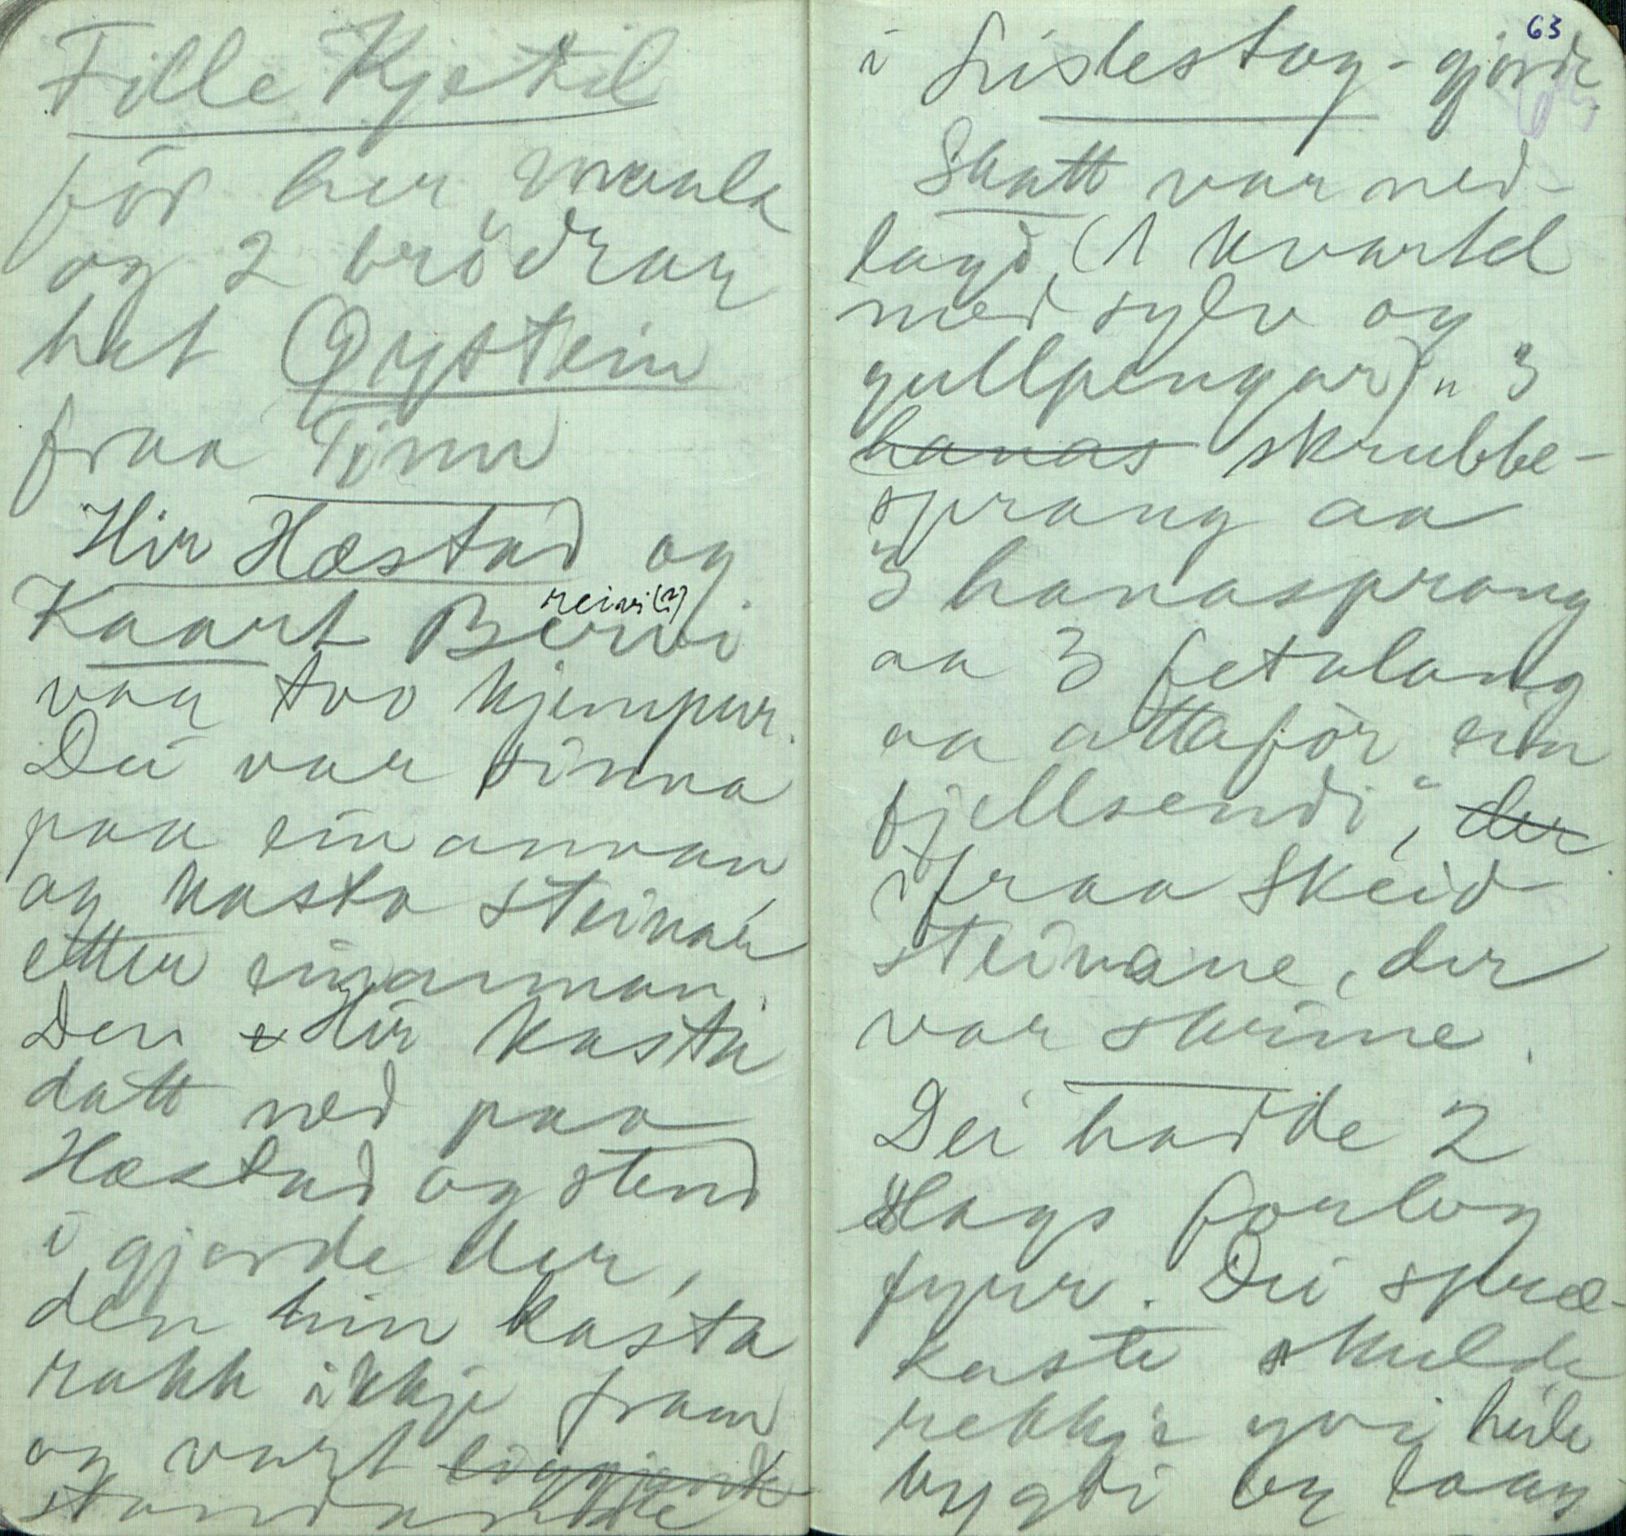 Fille Kjetil
fór her maala
og 2 brödrar
het Øystein
fraa Tinn
Hir Hæstad og
Kaart Berwi
reini(?)
var tvo kjempur.
Dei var sinna
paa ein annan
og kasta steinar
etter einannan.
Den Hir kasta
datt ned paa
Hæstad og stend
i gjerde der,
den hin kasta
rakk ikkje fram
og vart liggjande
standande
63
i Lislestog-gjorde.
Skatt var ned-
lagd (1 kvartel
med sylv og
gullpengar) „ 3
hanas skrubbe-
sprang aa
3 hanasprang
aa 3 fetalang
aa attafór ein
fjellsendi", der
ifraa Skeid
steinane, der
var skrine.
Dei hadde 2
slags forlog
fyrr. Dei spræ-
kaste skulde
rekkje yvi heile
bygdi og laag